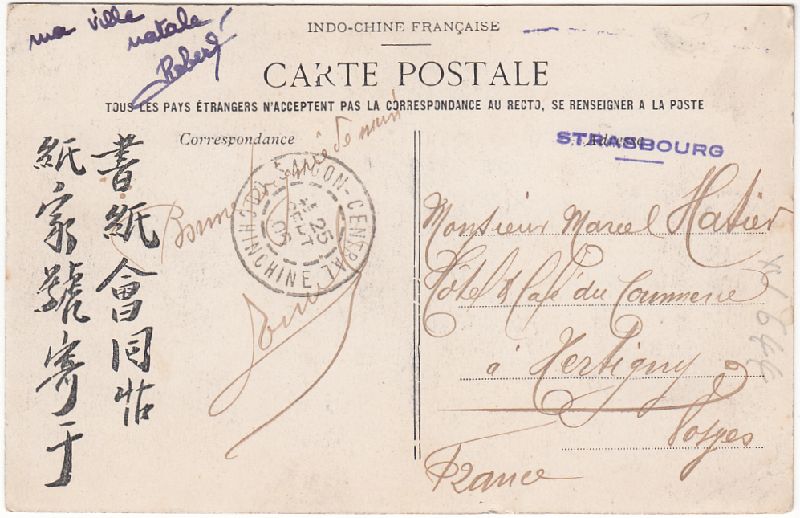 ma ville
natale
Robert
INDO-CHINE FRANÇAISE
CARTE POSTALE
TOUS LES PAYS ÉTRANGERS N'ACCEPTENT PAS LA CORRESPONDANCE AU RECTO, SE RENSEIGNER A LA POSTE
Correspondance
Adresse
STRASBOURG
Bonne de nuit
SAIGON-CENTRAL
25
05
COCHINCHINE
書紙會同
紙家號寄于
Monsieur Marcel Hatier
Hôtel & Café du Commerce
à Xertigny
Vosges
France